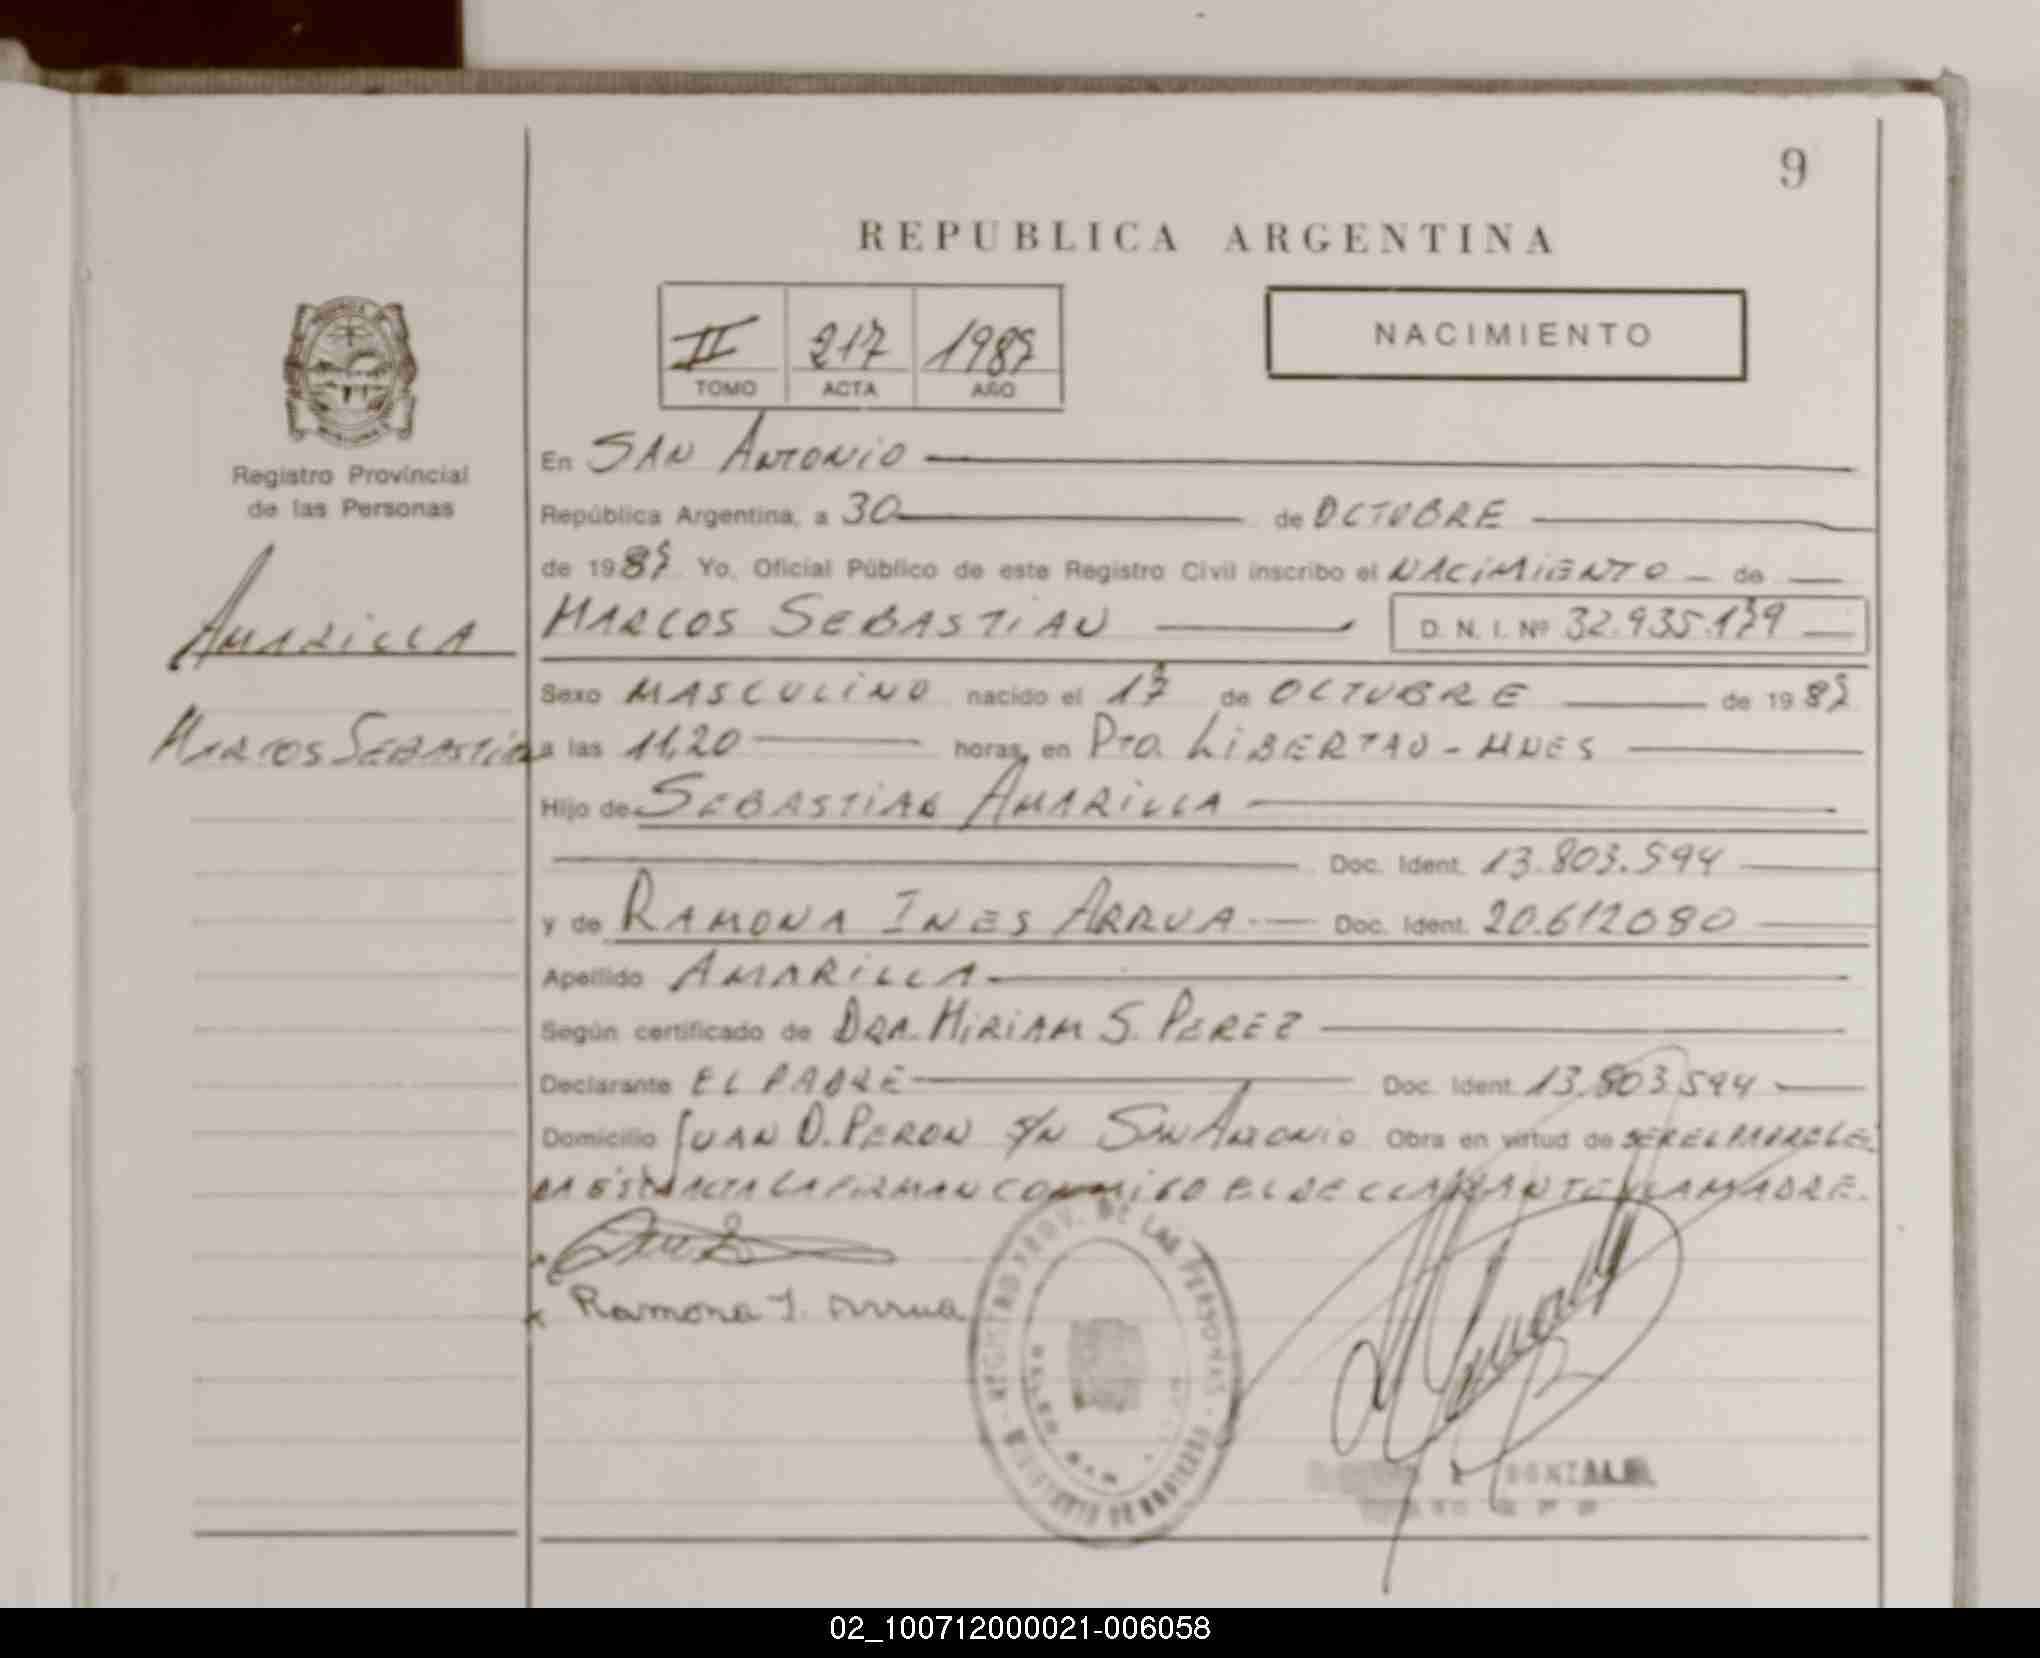 9
REPUBLICA ARGENTINA
II 217 1987
TOMO ACTA AÑO
NACIMIENTO
Registro Provincial
de las Personas
AMARILLA
MARCOS SEBASTIAN
En SAN ANTONIO
República Argentina, a 30 de OCTUBRE
de 1987 Yo, Oficial Público de este Registro Civil inscribo el NACIMIENTO de
MARCOS SEBASTIAN D. N. I. Nº 32.935.179
Sexo MASCULINO nacido el 17 de OCTUBRE de 1987
a las 11,20 horas, en Pto. LIBERTAD - MNES
Hijo de SEBASTIAN AMARILLA
Doc. Ident. 13.803.594
y de RAMONA INES ARRUA Doc. Ident. 20.612080
Apellido AMARILLA
Según certificado de DRA. MIRIAM S. PEREZ
Declarante EL PADRE Doc. Ident. 13.803.594
Domicilio JUAN D. PERON S/N SAN ANTONIO Obra en virtud de SER EL PADRE LEI
DA ESTA ACTA LA FIRMAN CONMIGO EL DECLARANTE Y LA MADRE.
Ramona I. Arrua
REGISTRO PROV. DE LAS PERSONAS
GONZALEZ
02_100712000021-006058